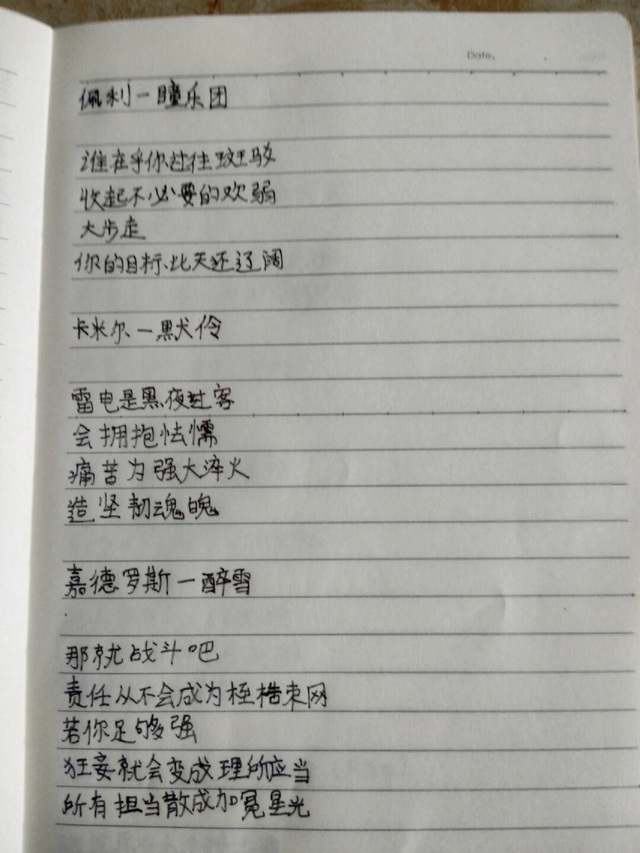 Date.
佩利一瞳乐团
谁在乎你过往斑驳
收起不必要的欢弱
大步走
你的目标、比天还辽阔
卡米尔一默伶
雷电是黑夜过客
会拥抱怯懦
痛苦为强大淬火
造坚韧魂魄
嘉德罗斯一醉雪
那就战斗吧
责任从不会成为桎梏束网
若你足够强
狂妄就会变成理所应当
所有担当散成加冕星光